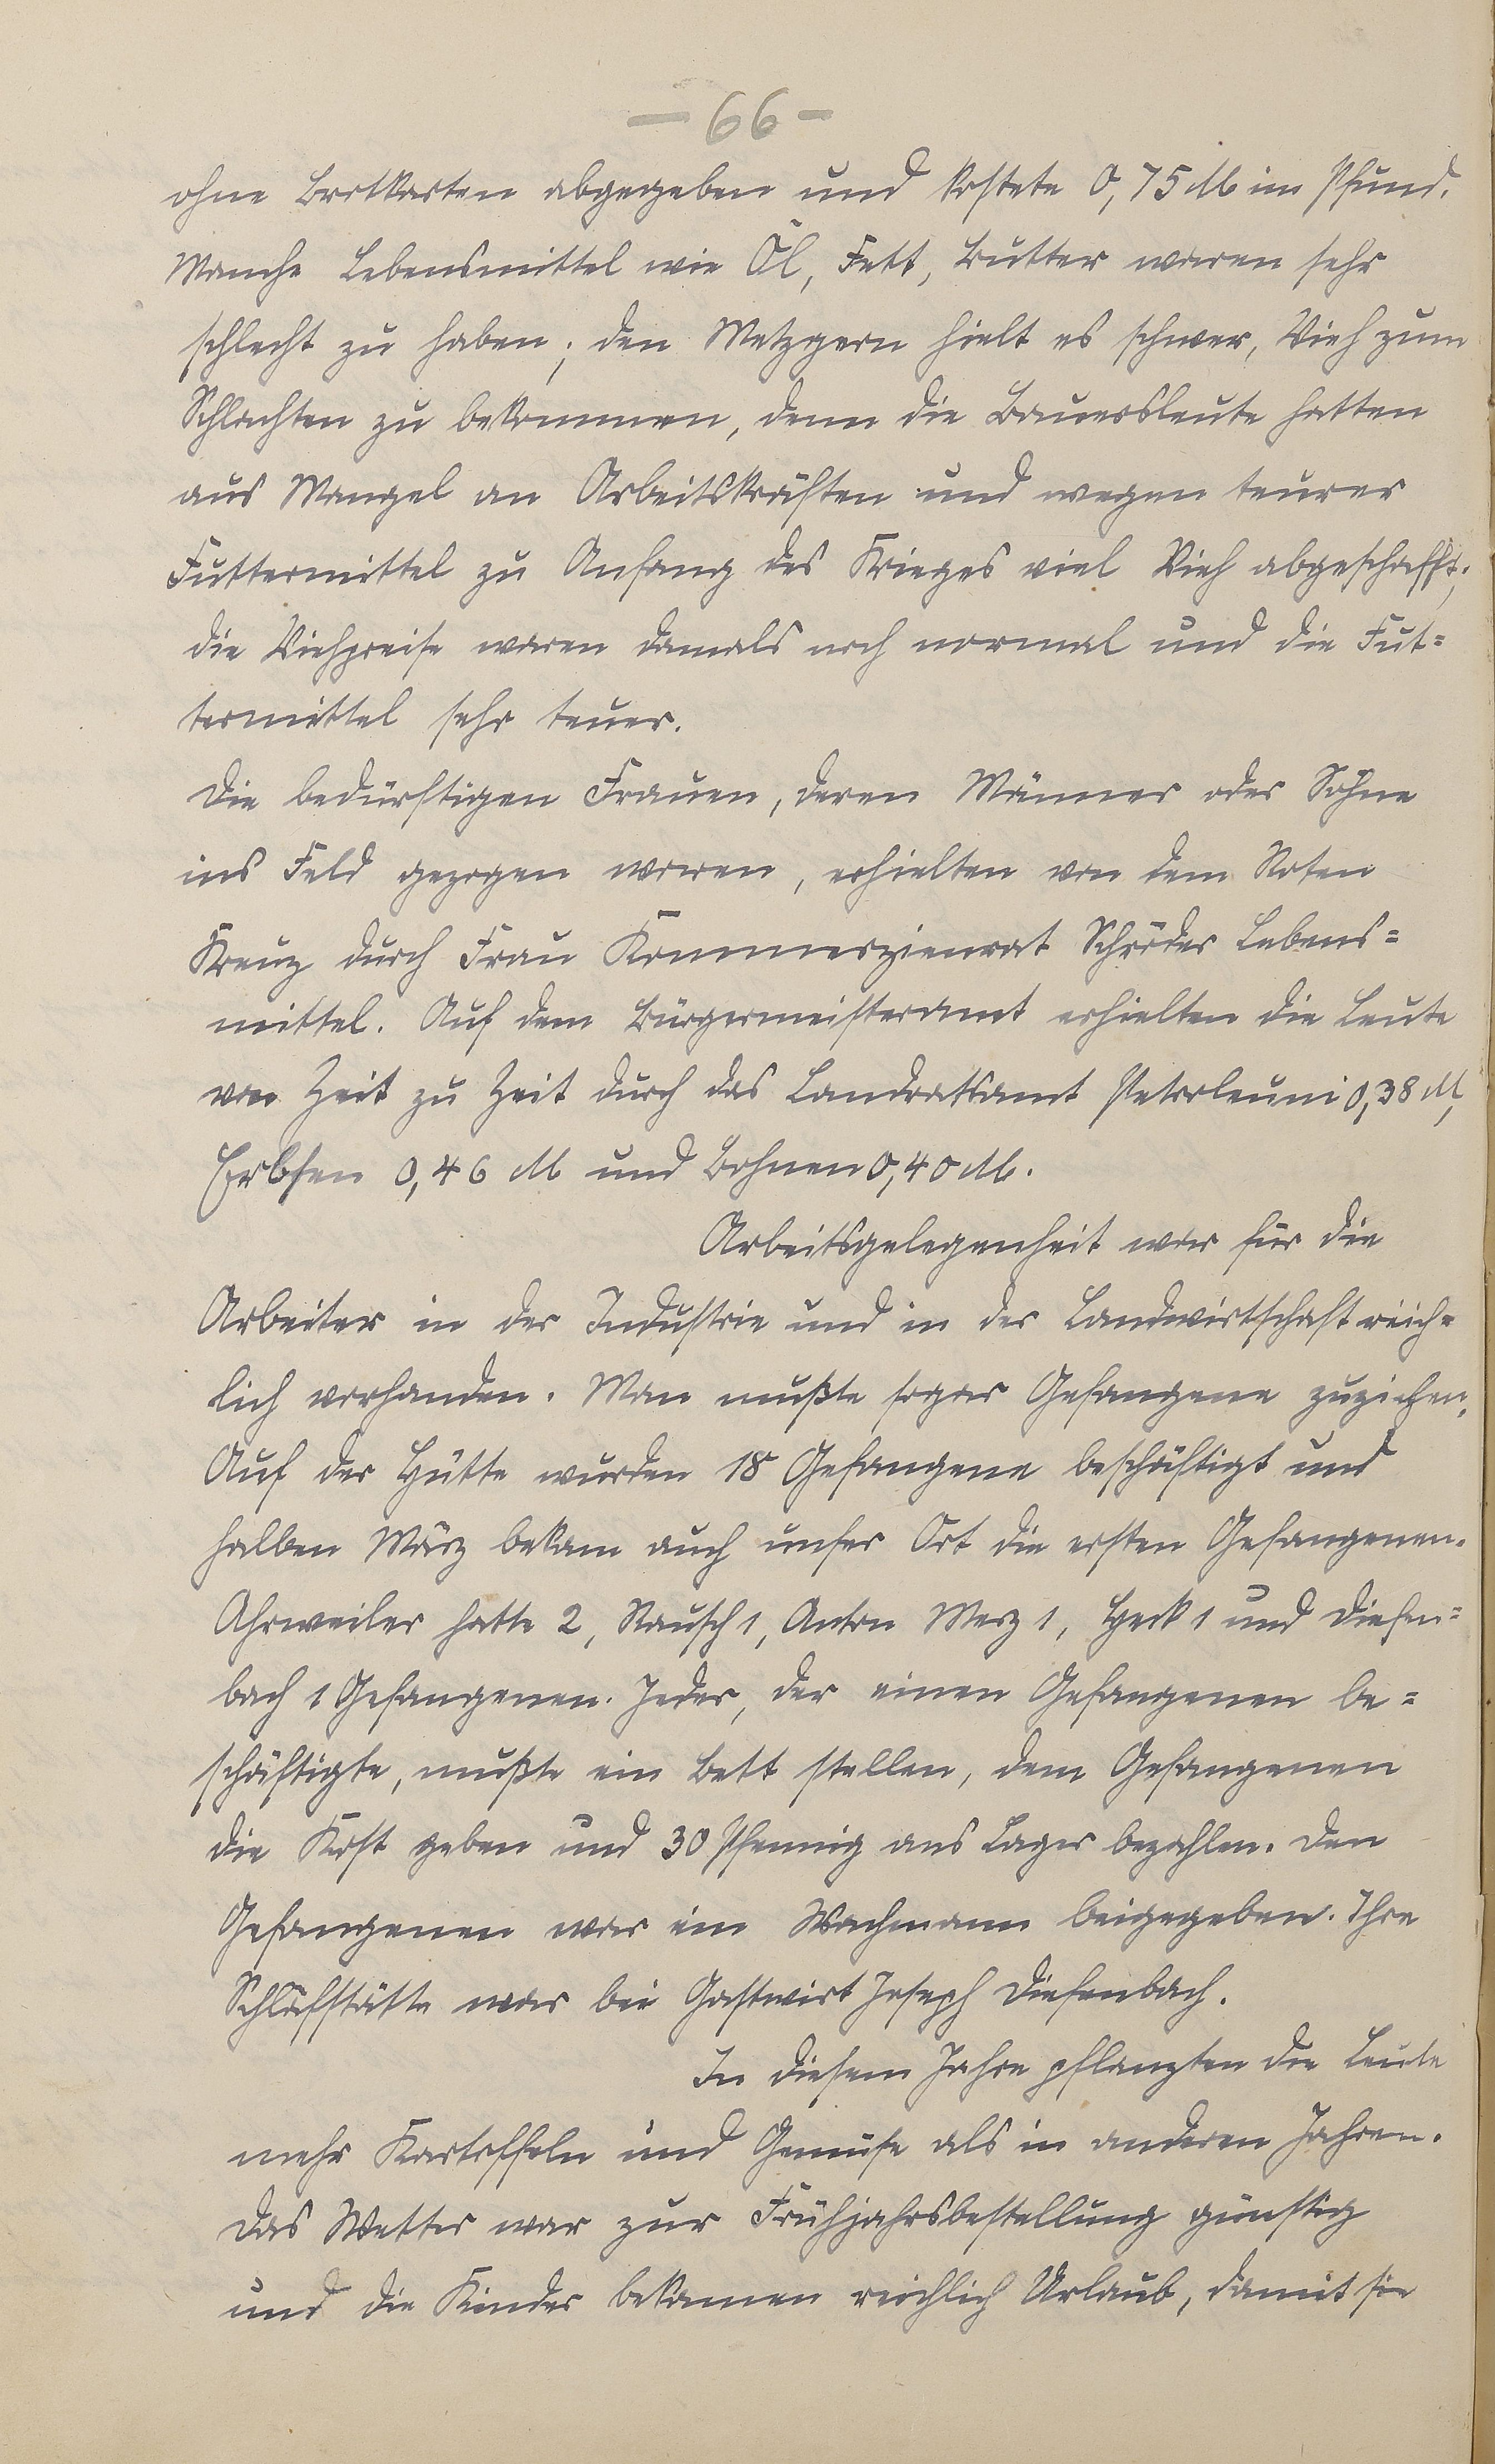 — 66 —
ohne Brotkarten abgegeben und kostete 0,75 M im Pfund.
Manche Lebensmittel wie Öl, Fett, Butter waren sehr
schlecht zu haben; den Metzgern hielt es schwer, Vieh zum
Schlachten zu bekommen, denn die Bauersleute hatten
aus Mangel an Arbeitskräften und wegen teurer
Futtermittel zu Anfang des Krieges viel Vieh abgeschafft;
die Viehpreise waren damals noch normal und die Fut=
termittel sehr teuer.
Die bedürftigen Frauen, deren Männer oder Söhne
ins Feld gezogen waren, erhielten von dem Roten
Kreuz durch Frau Kommerzienrat Schröder Lebens=
mittel. Auf dem Bürgermeisteramt erhielten die Leute
von Zeit zu Zeit durch das Landratsamt Petroleum 0,38 M,
Erbsen 0,46 M und Bohnen 0,40 M.
Arbeitsgelegenheit war für die
Arbeiter in der Industrie und in der Landwirtschaft reich=
lich vorhanden. Man mußte sogar Gefangene zuziehen.
Auf der Hütte wurden 18 Gefangene beschäftigt und
halben März bekam auch unser Ort die ersten Gefangenen.
Ahrweiler hatte 2, Rausch 1, Anton Merz 1, Heck 1 und Diefen=
bach 1 Gefangenen. Jeder, der einen Gefangenen be=
schäftigte, mußte ein Bett stellen, dem Gefangenen
die Kost geben und 30 Pfennig ans Lager bezahlen. Den
Gefangenen war ein Wachmann beigegeben. Ihre
Schlafstätte war bei Gastwirt Joseph Diefenbach.
In diesem Jahre pflanzten die Leute
mehr Kartoffeln und Gemüse als in anderen Jahren.
Das Wetter war zur Frühjahrsbestellung günstig
und die Kinder bekamen reichlich Urlaub, damit sie